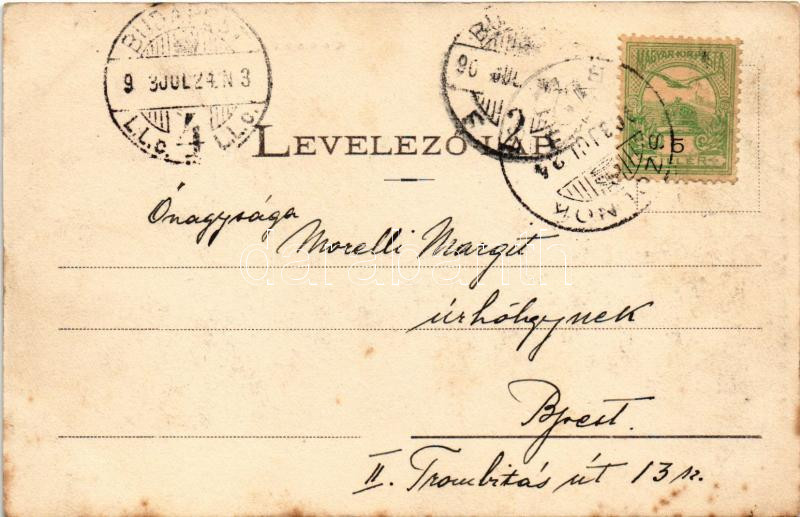 BUDAPEST
9 3JUL24.N 3
I.I.c. 4 I.I.c.
90 JUL
E 2
3 JUL 24
SZOLNOK
MAGYAR KIR. POSTA
6
LEVELEZŐ LAP
Őnagysága
Morelli Margit
úrhölgynek
Bpest.
II. Trombitás út 13 sz.
darabanth